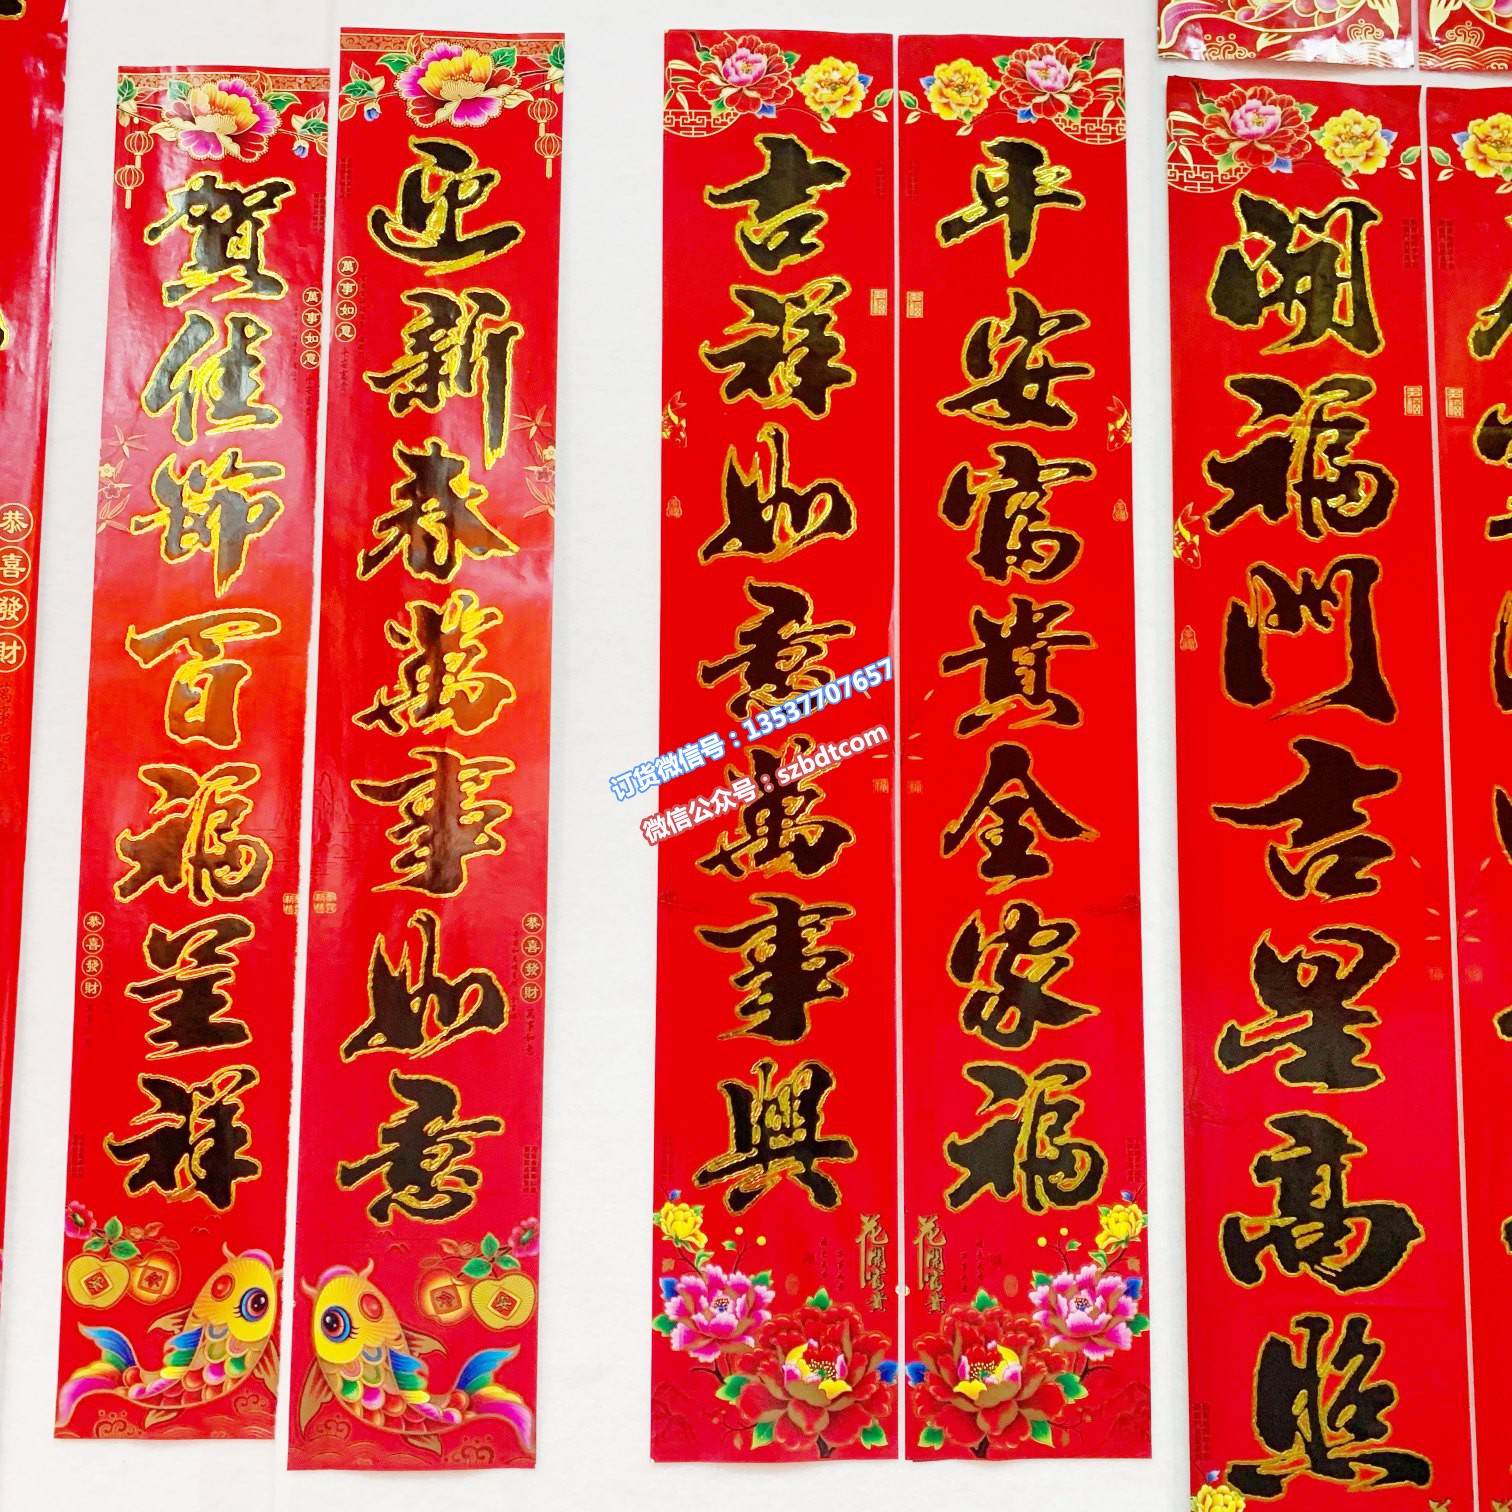 賀佳節百福呈祥
萬事如意
恭喜發財
迎新春萬事如意
萬事如意
恭喜發財
吉祥如意萬事興
花開富貴
平安富貴全家福
花開富貴
開福門吉星高照
恭喜發財
订货微信号：13537707657
微信公众号：szbdtcom